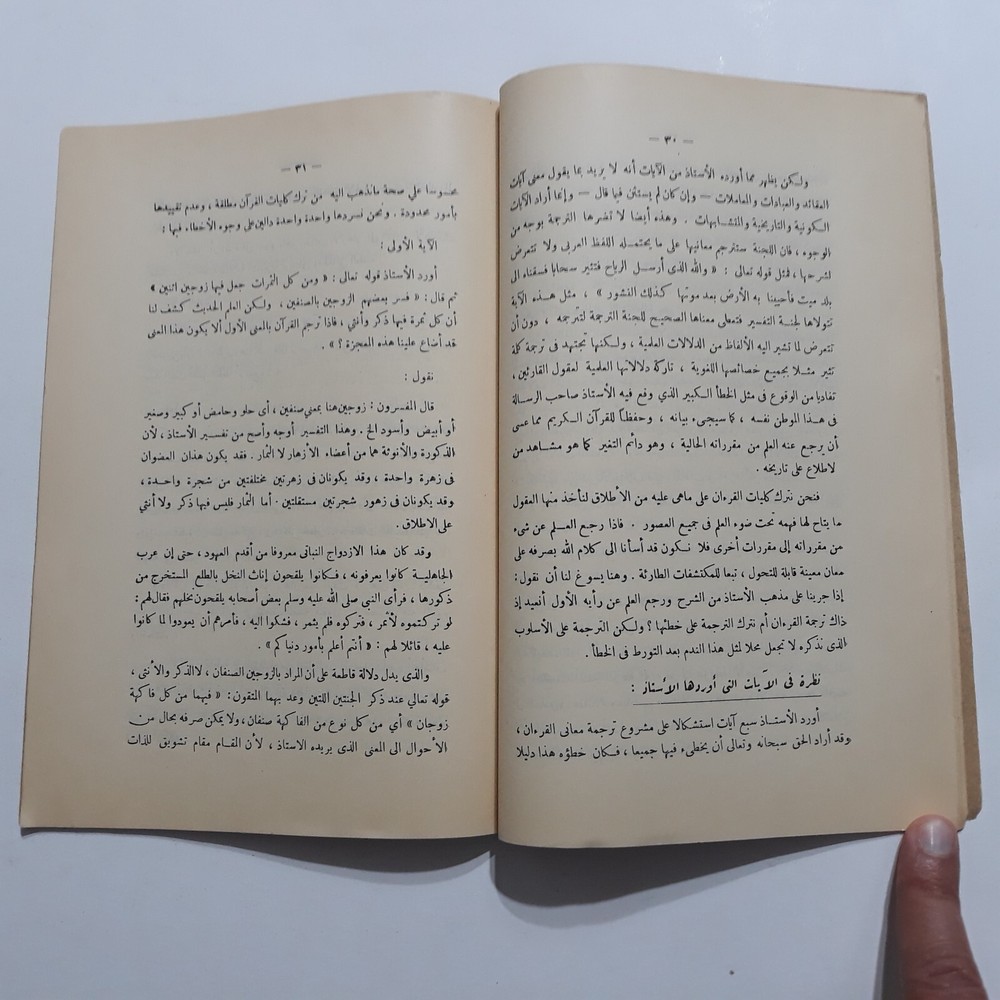 — ٣٠ —
ولكن يظهر مما أورده الأستاذ من الآيات أنه لا يريد بما يقول معنى آيات
العقائد والعبادات والمعاملات — وإن كان لم يستثن فيما قال — وإنما أراد الآيات
الكونية والتاريخية والمتشابهات . وهذه أيضا لا تضرها الترجمة بوجه من
الوجوه ، فان اللجنة ستترجم معانيها على ما يحتمله اللفظ العربى ولا تتعرض
لشرحها ، فمثل قوله تعالى : « والله الذى أرسل الرياح فتثير سحابا فسقناه الى
بلد ميت فأحيينا به الأرض بعد موتها كذلك النشور » ، مثل هذه الآية
تتولاها لجنة التفسير فتعطى معناها الصحيح للجنة الترجمة لتترجمه ، دون أن
تتعرض لما تشير اليه الألفاظ من الدلالات العلمية ، ولكنها تجتهد فى ترجمة كلمة
تثير مثلا بجميع خصائصها اللغوية ، تاركة دلالاتها العلمية لعقول القارئين ،
تفاديا من الوقوع فى مثل الخطأ الكبير الذي وقع فيه الأستاذ صاحب الرسالة
فى هذا الموطن نفسه ، كما سيجىء بيانه ، وحفظاً للقرآن الكريم مما عسى
أن يرجع عنه العلم من مقرراته الحالية ، وهو دائم التغير كما هو مشاهد من
لاطلاع على تاريخه .
فنحن نترك كليات القرءان على ماهى عليه من الأطلاق لتأخذ منها العقول
ما يتاح لها فهمه تحت ضوء العلم فى جميع العصور . فاذا رجع العلم عن شىء
من مقرراته إلى مقررات أخرى فلا نكون قد أسأنا الى كلام الله بصرفه على
معان معينة قابلة للتحول ، تبعا للمكتشفات الطارئة . وهنا يسوغ لنا أن نقول :
إذا جرينا على مذهب الأستاذ من الشرح ورجع العلم عن رأيه الأول أنعيد إذ
ذاك ترجمة القرءان أم نترك الترجمة على خطئها ؟ ولكن الترجمة على الأسلوب
الذى نذكره لا تجعل محلا لمثل هذا الندم بعد التورط فى الخطأ .
نظرة فى الآيات التى أوردها الأستاذ :
أورد الأستاذ سبع آيات استشكالا على مشروع ترجمة معانى القرءان ،
وقد أراد الحق سبحانه وتعالى أن يخطىء فيها جميعا ، فكان خطؤه هذا دليلا
— ٣١ —
محسوسا علي صحة مانذهب اليه من ترك كليات القرآن مطلقة ، وعدم تقييدها
بأمور محدودة . ونحن نسردها واحدة واحدة دالين على وجوه الأخطاء فيها :
الآية الأولى :
أورد الأستاذ قوله تعالى : « ومن كل الثمرات جعل فيها زوجين اثنين »
ثم قال : « فسر بعضهم الزوجين بالصنفين ، ولكن العلم الحديث كشف لنا
أن كل ثمرة فيها ذكر وأنثي ، فاذا ترجم القرآن بالمعنى الأول ألا يكون هذا المعنى
قد أضاع علينا هذه المعجزة ؟ » .
نقول :
قال المفسرون : زوجين هنا بمعني صنفين ، أى حلو وحامض أو كبير وصغير
أو أبيض وأسود الخ . وهذا التفسير أوجه وأصح من تفسير الأستاذ ، لأن
الذكورة والأنوثة هما من أعضاء الأزهار لا الثمار . فقد يكون هذان العضوان
فى زهرة واحدة ، وقد يكونان فى زهرتين مختلفتين من شجرة واحدة ،
وقد يكونان فى زهور شجرتين مستقلتين . أما الثمار فليس فيها ذكر ولا أنثي
على الاطلاق .
وقد كان هذا الازدواج النباتى معروفا من أقدم العهود ، حتى إن عرب
الجاهلية كانوا يعرفونه ، فكانوا يلقحون إناث النخل بالطلع المستخرج من
ذكورها ، فرأى النبى صلى الله عليه وسلم بعض أصحابه يلقحون نخلهم فقال لهم :
لو تركتموه لأثمر ، فتركوه فلم يثمر ، فشكوا اليه ، فأمرهم أن يعودوا لما كانوا
عليه ، قائلا لهم : « أنتم أعلم بأمور دنياكم » .
والذى يدل دلالة قاطعة على أن المراد بالزوجين الصنفان ، لا الذكر والأنثى ،
قوله تعالي عند ذكر الجنتين اللتين وعد بهما المتقون : « فيهما من كل فاكهة
زوجان » أي من كل نوع من الفاكهة صنفان ، ولا يمكن صرفه بحال من
الأحوال الى المعنى الذى يريده الاستاذ ، لأن المقام مقام تشويق للذات